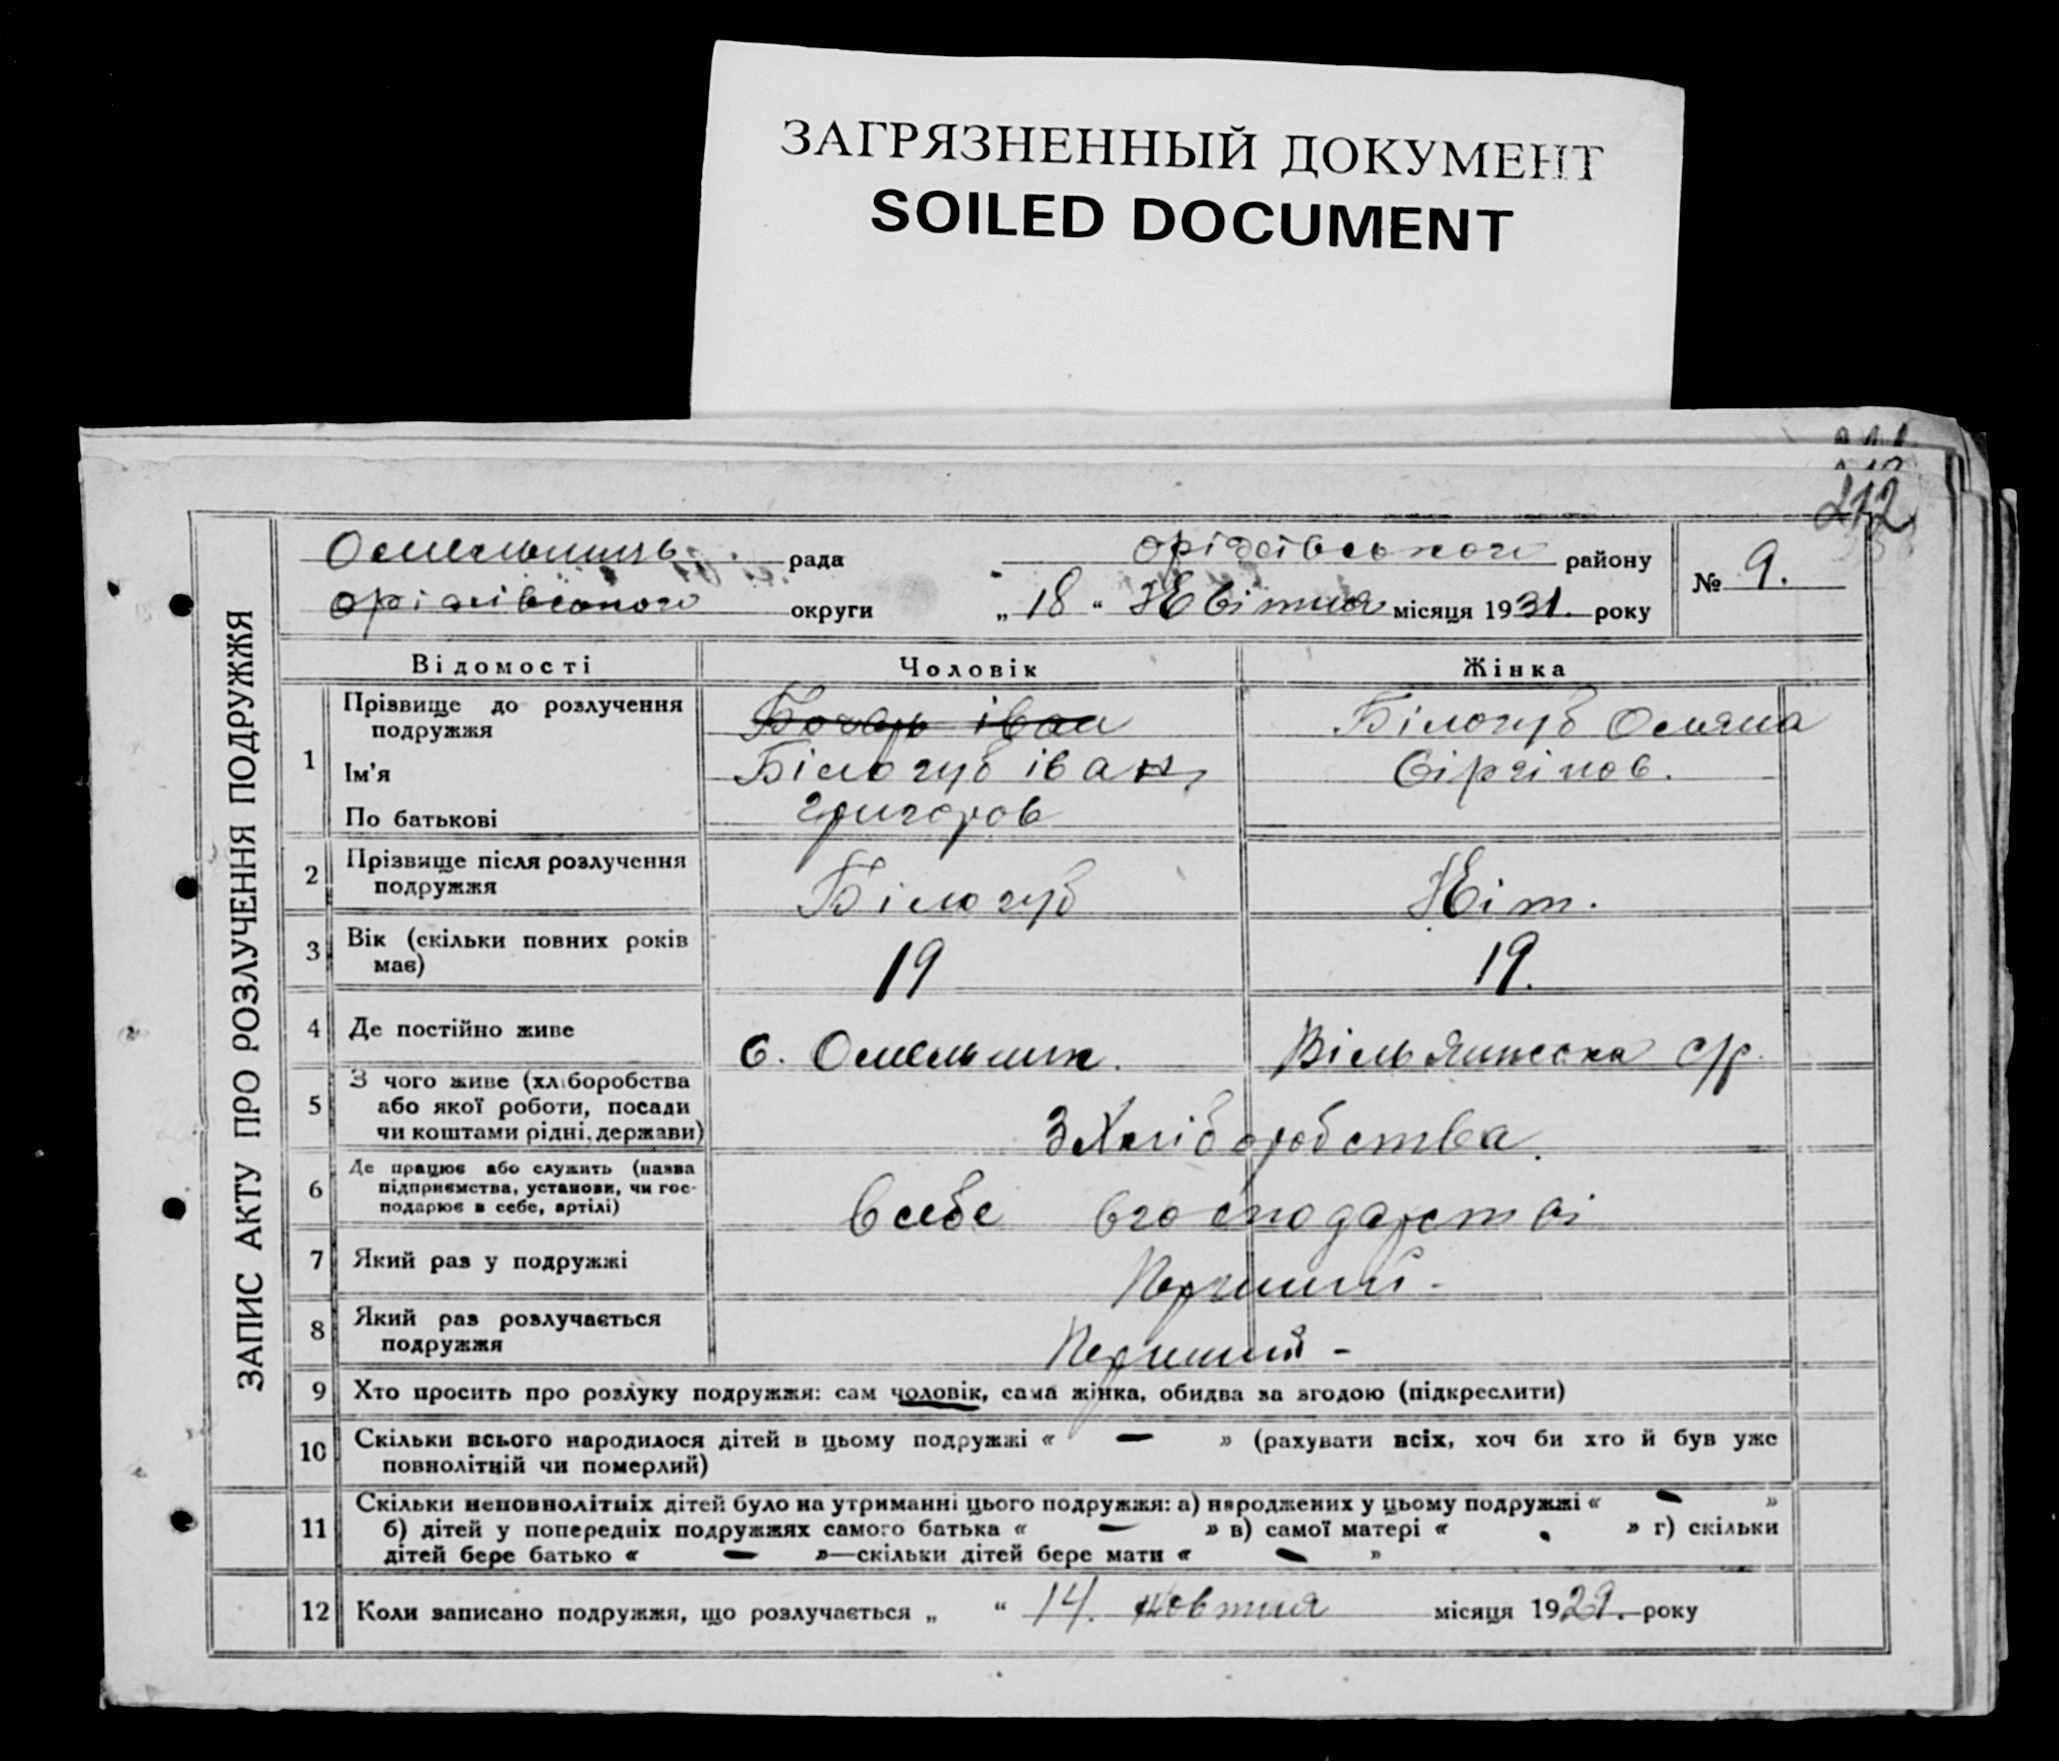 ЗАГРЯЗНЕННЫЙ ДОКУМЕНТ
SOILED DOCUMENT
212
ЗАПИС АКТУ ПРО РОЗЛУЧЕННЯ ПОДРУЖЖЯ
рада району № 9.
округи „ 18 “ Квітня місяця 1931. року
Відомості Чоловік Жінка
1 Прізвище до розлучення подружжя
Ім'я
По батькові
Бочар іван
Білогуб іван,
григоров
Білогуб Оляна
2 Прізвище після розлучення подружжя Білогуб Кіт.
3 Вік (скільки повних років має) 19 19.
4 Де постійно живе с. Омельник. с/р.
5 З чого живе (хліборобства
або якої роботи, посади
чи коштами рідні, держави)
З Хліборобства.
6 Де працює або служить (назва
підприємства, установи, чи гос-
подарює в себе, артілі)
в себе в господарстві
7 Який раз у подружжі Перший -
8 Який раз розлучається подружжя Перший -
9 Хто просить про розлуку подружжя: сам чоловік, сама жінка, обидва за згодою (підкреслити)
10 Скільки всього народилося дітей в цьому подружжі « — » (рахувати всіх, хоч би хто й був уже
повнолітній чи померлий)
11 Скільки неповнолітніх дітей було на утриманні цього подружжя: а) народжених у цьому подружжі « — »
б) дітей у попередніх подружжях самого батька « — » в) самої матері « . » г) скільки
дітей бере батько « — »—скільки дітей бере мати « — »
12 Коли записано подружжя, що розлучається „ “ 14. жовтня місяця 1929. року